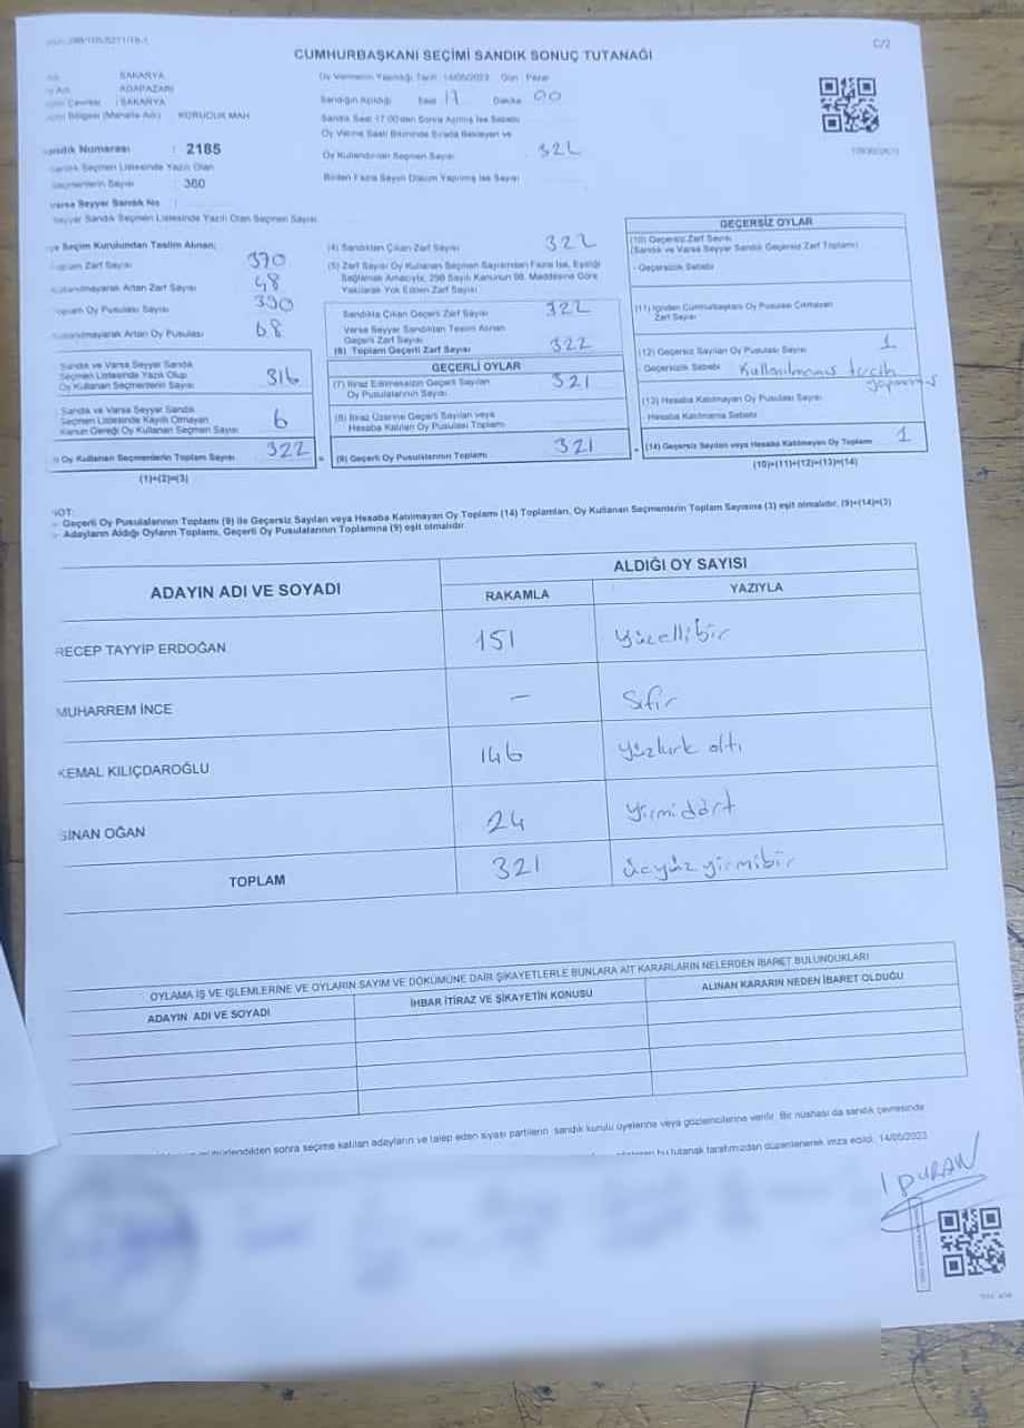 C/2
CUMHURBAŞKANI SEÇİMİ SANDIK SONUÇ TUTANAĞI
SAKARYA
ADAPAZARI
SAKARYA
KORUCUK MAH
Oy Vermenin Yapıldığı Tarih 14/05/2023 Gün Pazar
Sandığın Açıldığı Saat 17 Dakika 00
Sandık Saat 17.00'den Sonra Açılmış İse Sebebi
Oy Verme Saati Bitiminde Sırada Bekleyen ve
Oy Kullandırılan Seçmen Sayısı 322
Birden Fazla Sayım Döküm Yapılmış İse Sayısı
Sandık Numarası : 2185
Sandık Seçmen Listesinde Yazılı Olan
Seçmenlerin Sayısı : 360
Varsa Seyyar Sandık No
Seyyar Sandık Seçmen Listesinde Yazılı Olan Seçmen Sayısı
Seçim Kurulundan Teslim Alınan;
Toplam Zarf Sayısı 370
Kullanılmayarak Artan Zarf Sayısı 48
Toplam Oy Pusulası Sayısı 390
Kullanılmayarak Artan Oy Pusulası 68
Sandık ve Varsa Seyyar Sandık
Seçmen Listesinde Yazılı Olup
Oy Kullanan Seçmenlerin Sayısı 316
Sandık ve Varsa Seyyar Sandık
Seçmen Listesinde Kayıtlı Olmayan
Kanun Gereği Oy Kullanan Seçmen Sayısı 6
Oy Kullanan Seçmenlerin Toplam Sayısı 322
(1)+(2)=(3)
(4) Sandıktan Çıkan Zarf Sayısı 322
(5) Zarf Sayısı Oy Kullanan Seçmen Sayısından Fazla İse, Eşitliği
Sağlamak Amacıyla, 298 Sayılı Kanunun 98. Maddesine Göre
Yakılarak Yok Edilen Zarf Sayısı
Sandıkta Çıkan Geçerli Zarf Sayısı 322
Varsa Seyyar Sandıktan Teslim Alınan
Geçerli Zarf Sayısı
(6) Toplam Geçerli Zarf Sayısı 322
GEÇERLİ OYLAR
(7) İtiraz Edilmeksizin Geçerli Sayılan
Oy Pusulalarının Sayısı 321
(8) İtiraz Üzerine Geçerli Sayılan veya
Hesaba Katılan Oy Pusulası Toplamı
(9) Geçerli Oy Pusulalarının Toplamı 321
GEÇERSİZ OYLAR
(10) Geçersiz Zarf Sayısı
(Sandık ve Varsa Seyyar Sandık Geçersiz Zarf Toplamı)
- Geçersizlik Sebebi
(11) İçinden Cumhurbaşkanı Oy Pusulası Çıkmayan
Zarf Sayısı
(12) Geçersiz Sayılan Oy Pusulası Sayısı 1
Geçersizlik Sebebi Kullanılmamış tercih
yapmamış
(13) Hesaba Katılmayan Oy Pusulası Sayısı
Hesaba Katılmama Sebebi
(14) Geçersiz Sayılan veya Hesaba Katılmayan Oy Toplamı 1
(10)+(11)+(12)+(13)=(14)
NOT:
- Geçerli Oy Pusulalarının Toplamı (9) ile Geçersiz Sayılan veya Hesaba Katılmayan Oy Toplamı (14) Toplamları, Oy Kullanan Seçmenlerin Toplam Sayısına (3) eşit olmalıdır. (9)+(14)=(3)
- Adayların Aldığı Oyların Toplamı, Geçerli Oy Pusulalarının Toplamına (9) eşit olmalıdır.
ADAYIN ADI VE SOYADI
ALDIĞI OY SAYISI
RAKAMLA YAZIYLA
RECEP TAYYİP ERDOĞAN 151 Yüzellibir
MUHARREM İNCE - Sıfır
KEMAL KILIÇDAROĞLU 146 yüzkırk altı
SİNAN OĞAN 24 yirmidört
TOPLAM 321 üçyüzyirmibir
OYLAMA İŞ VE İŞLEMLERİNE VE OYLARIN SAYIM VE DÖKÜMÜNE DAİR ŞİKAYETLERLE BUNLARA AİT KARARLARIN NELERDEN İBARET BULUNDUKLARI
ADAYIN ADI VE SOYADI
İHBAR İTİRAZ VE ŞİKAYETİN KONUSU
ALINAN KARARIN NEDEN İBARET OLDUĞU
sonra seçime katılan adayların ve talep eden siyasi partilerin sandık kurulu üyelerine veya gözlemcilerine verilir. Bir nüshası da sandık çevresinde
bu tutanak tarafımızdan düzenlenerek imza edildi. 14/05/2023
I DURAN